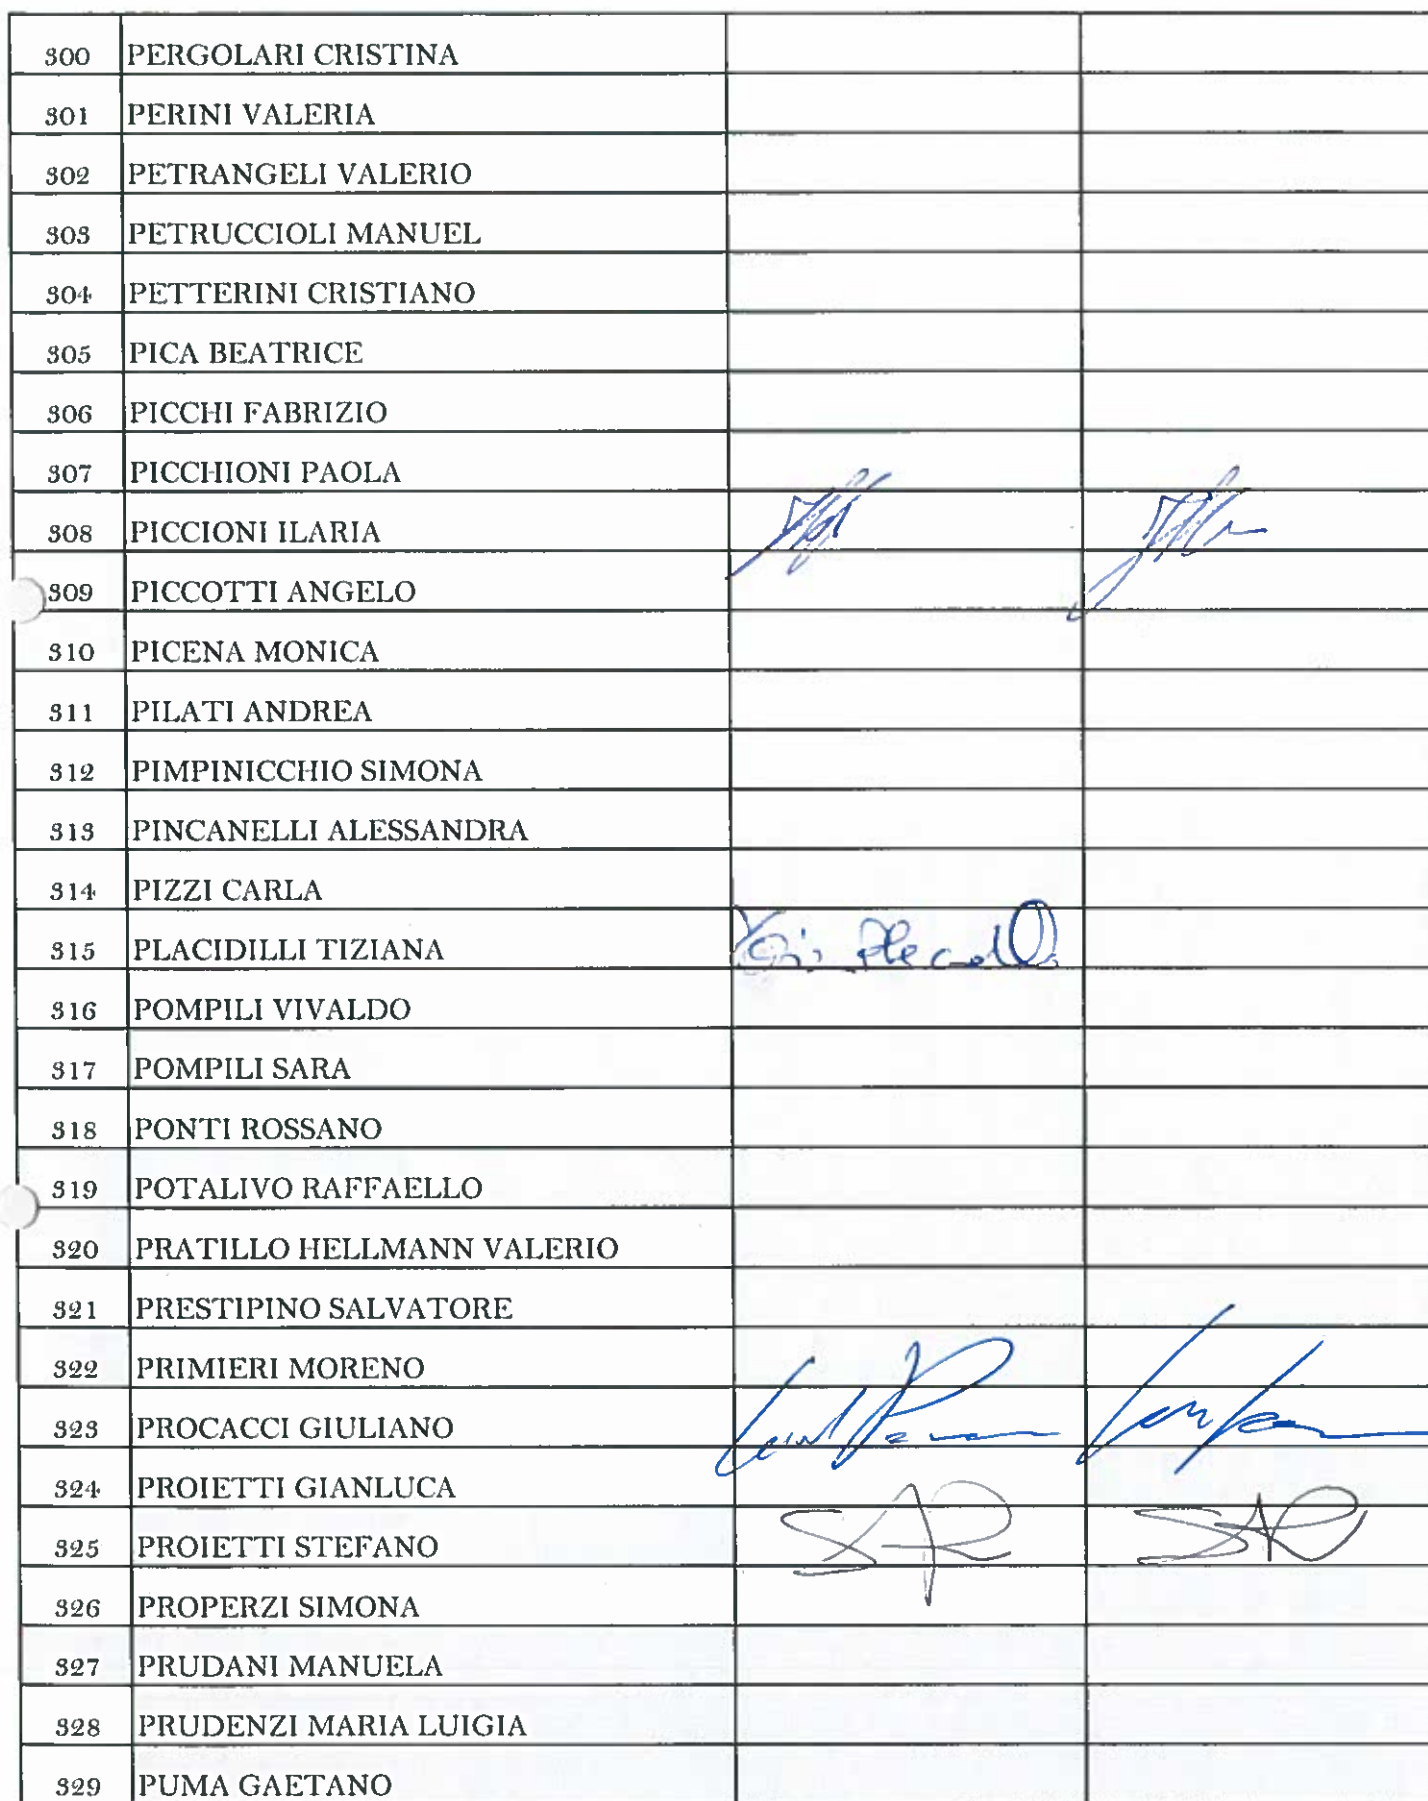 300 PERGOLARI CRISTINA
301 PERINI VALERIA
302 PETRANGELI VALERIO
303 PETRUCCIOLI MANUEL
304 PETTERINI CRISTIANO
305 PICA BEATRICE
306 PICCHI FABRIZIO
307 PICCHIONI PAOLA
308 PICCIONI ILARIA
309 PICCOTTI ANGELO
310 PICENA MONICA
311 PILATI ANDREA
312 PIMPINICCHIO SIMONA
313 PINCANELLI ALESSANDRA
314 PIZZI CARLA
315 PLACIDILLI TIZIANA
316 POMPILI VIVALDO
317 POMPILI SARA
318 PONTI ROSSANO
319 POTALIVO RAFFAELLO
320 PRATILLO HELLMANN VALERIO
321 PRESTIPINO SALVATORE
322 PRIMIERI MORENO
323 PROCACCI GIULIANO
324 PROIETTI GIANLUCA
325 PROIETTI STEFANO
326 PROPERZI SIMONA
327 PRUDANI MANUELA
328 PRUDENZI MARIA LUIGIA
329 PUMA GAETANO